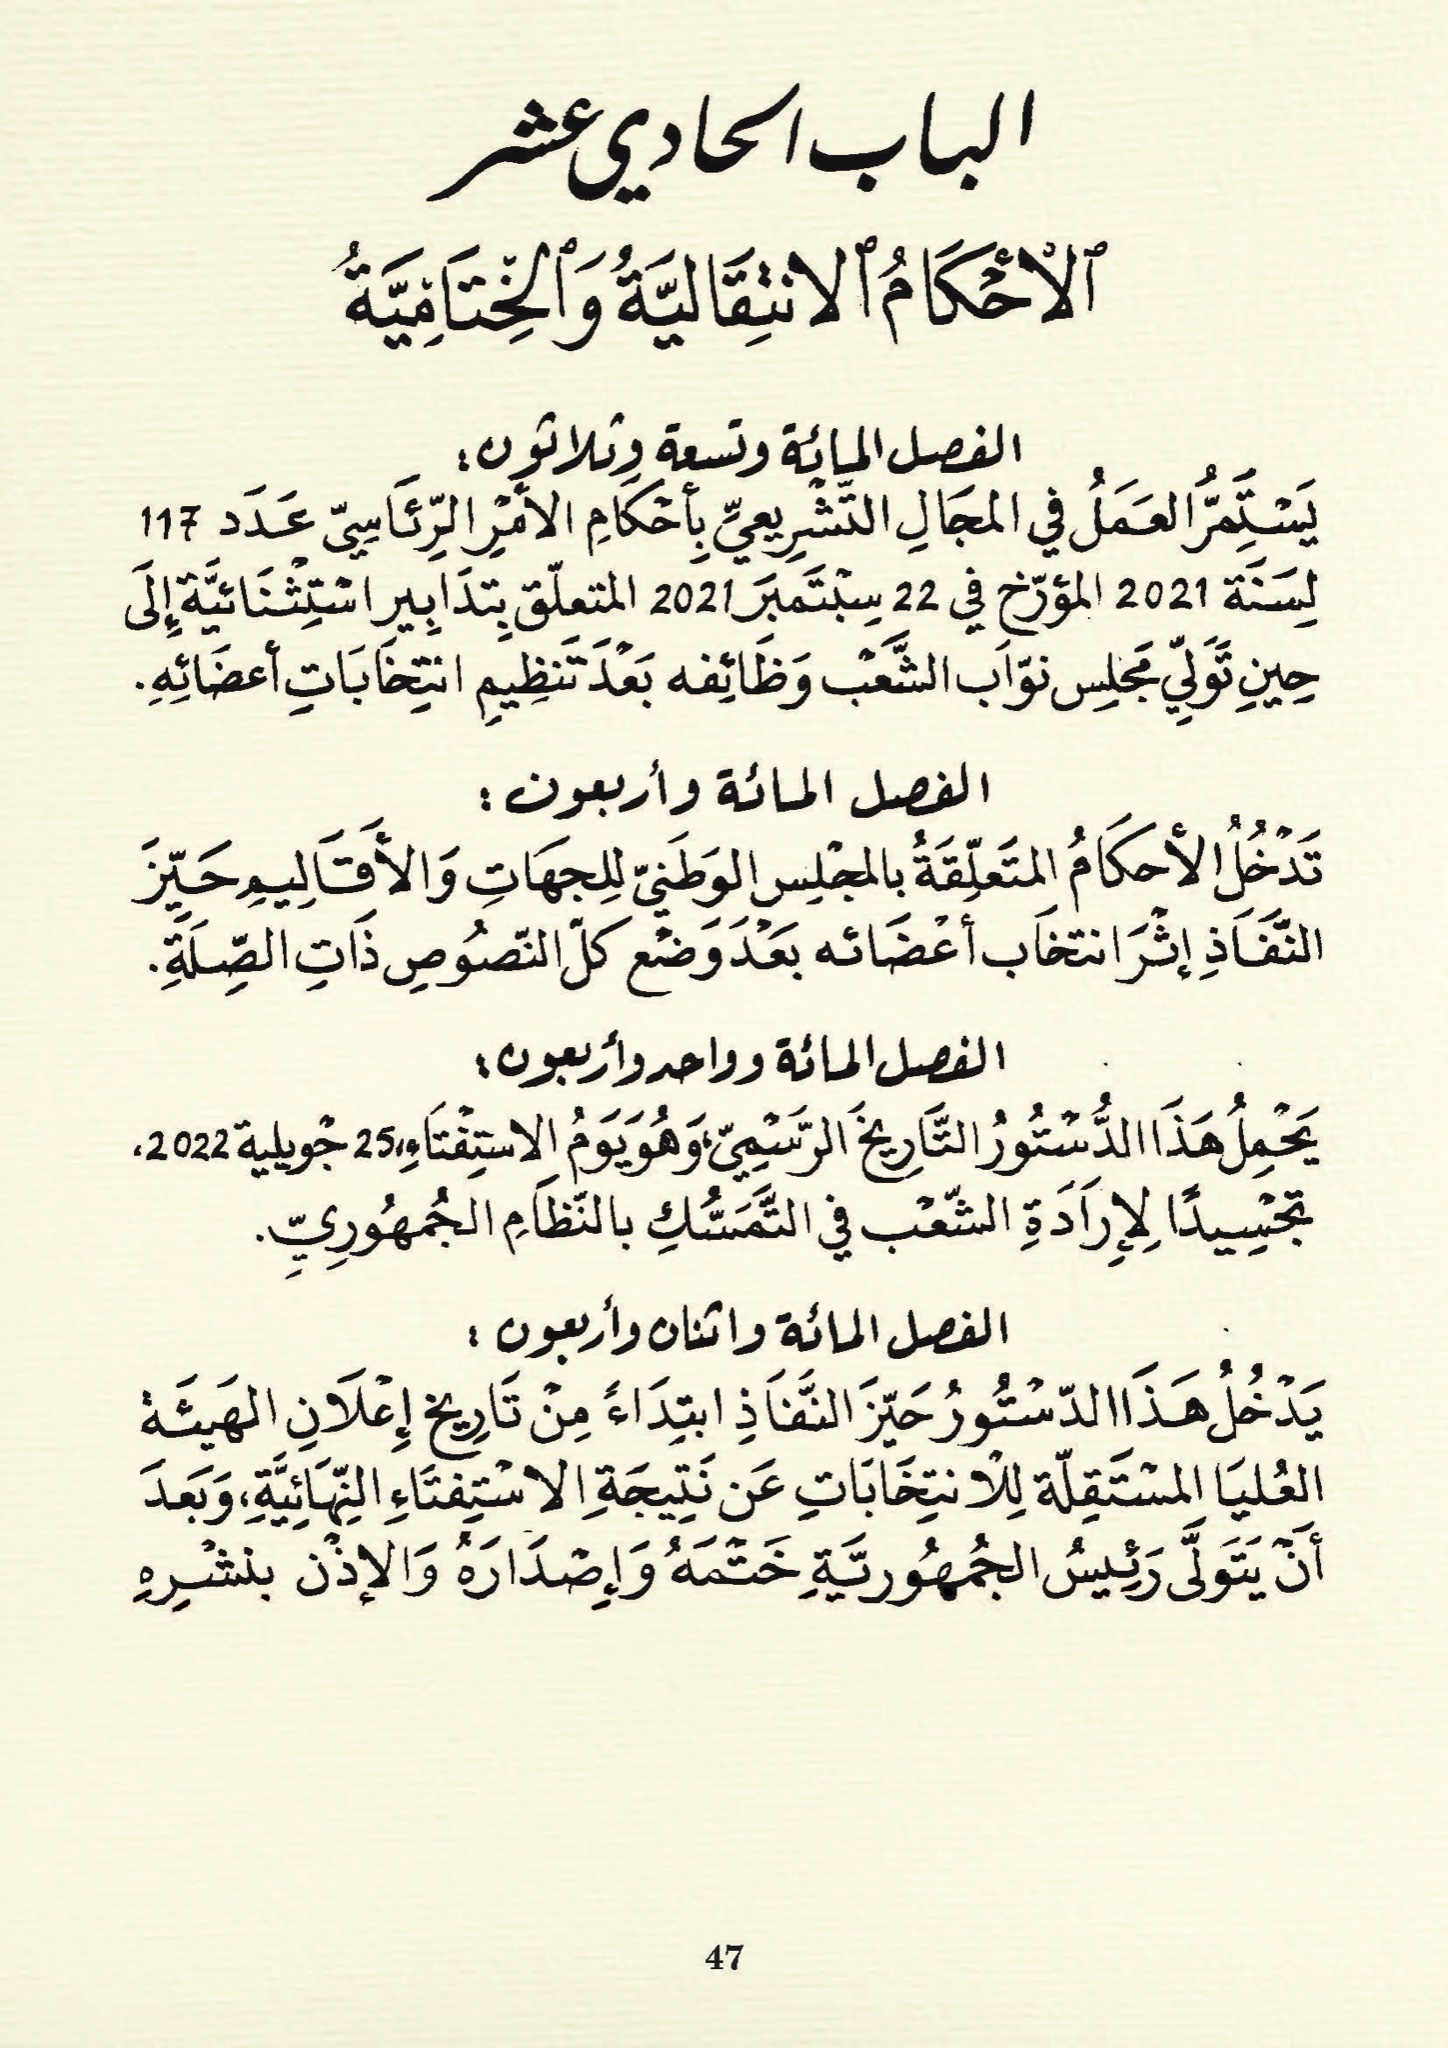 الباب الحادي عشر
ٱلْأَحْكَامُ ٱلانْتِقَالِيَّةُ وَٱلْخِتَامِيَّةُ
الفصل المائة وتسعة وثلاثون:
يَسْتَمِرُّ العَمَلُ في المجَالِ التَّشْرِيعيِّ بِأحْكَامِ الأمْرِ الرِّئَاسِيّ عَدَد 117
لِسَنَة 2021 المؤرّخ في 22 سِبْتَمبَر 2021 المتعلّق بِتدَابِير اسْتِثْنَائيَّة إِلَى
حِينِ تَوَلِّي مَجْلِس نوّاَب الشَّعْب وَظَائِفه بَعْدَ تَنظِيمِ انتِخَابَاتِ أعضَائِهِ.
الفصل المائة وأربعون:
تَدْخُلُ الأحكَامُ المتَعلِّقَةُ بالمجْلِسِ الوَطَنيّ لِلجهَاتِ وَالأَقَالِيمِ حَيّزَ
النَّفَاذِ إثْرَ انتخَاب أعْضَائه بَعْدَ وَضْع كلّ النّصُوصِ ذَاتِ الصِّلَةِ.
الفصل المائة وواحد وأربعون:
يَحْمِلُ هَذَا الدُّسْتُورُ التَّارِيخَ الرَّسْمِيّ، وَهُوَ يَوَمُ الاِستِفْتَاءِ، 25 جْويلية 2022،
تجْسِيدًا لِإرَادَةِ الشّعْب في التَّمَسُّكِ بالنّظَامِ الجُمهُورِيِّ.
الفصل المائة واثنان وأربعون:
يَدْخُلُ هَذَا الدّسْتُورُ حَيّزَ النَّفَاذِ ابتِدَاءً مِنْ تَارِيخ إِعْلَانِ الهَيئَة
العُليَا المسْتَقِلّة لِلْانتِخَابَاتِ عَن نَتِيجَةِ الاسْتِفتَاءِ النِّهَائِيَّةِ، وَبَعدَ
أنْ يَتَوَلَّى رَئِيسُ الجُمهُوريَّةِ خَتْمَهُ وَإِصْدَارَهُ وَالإذْن بنشْرِهِ
47